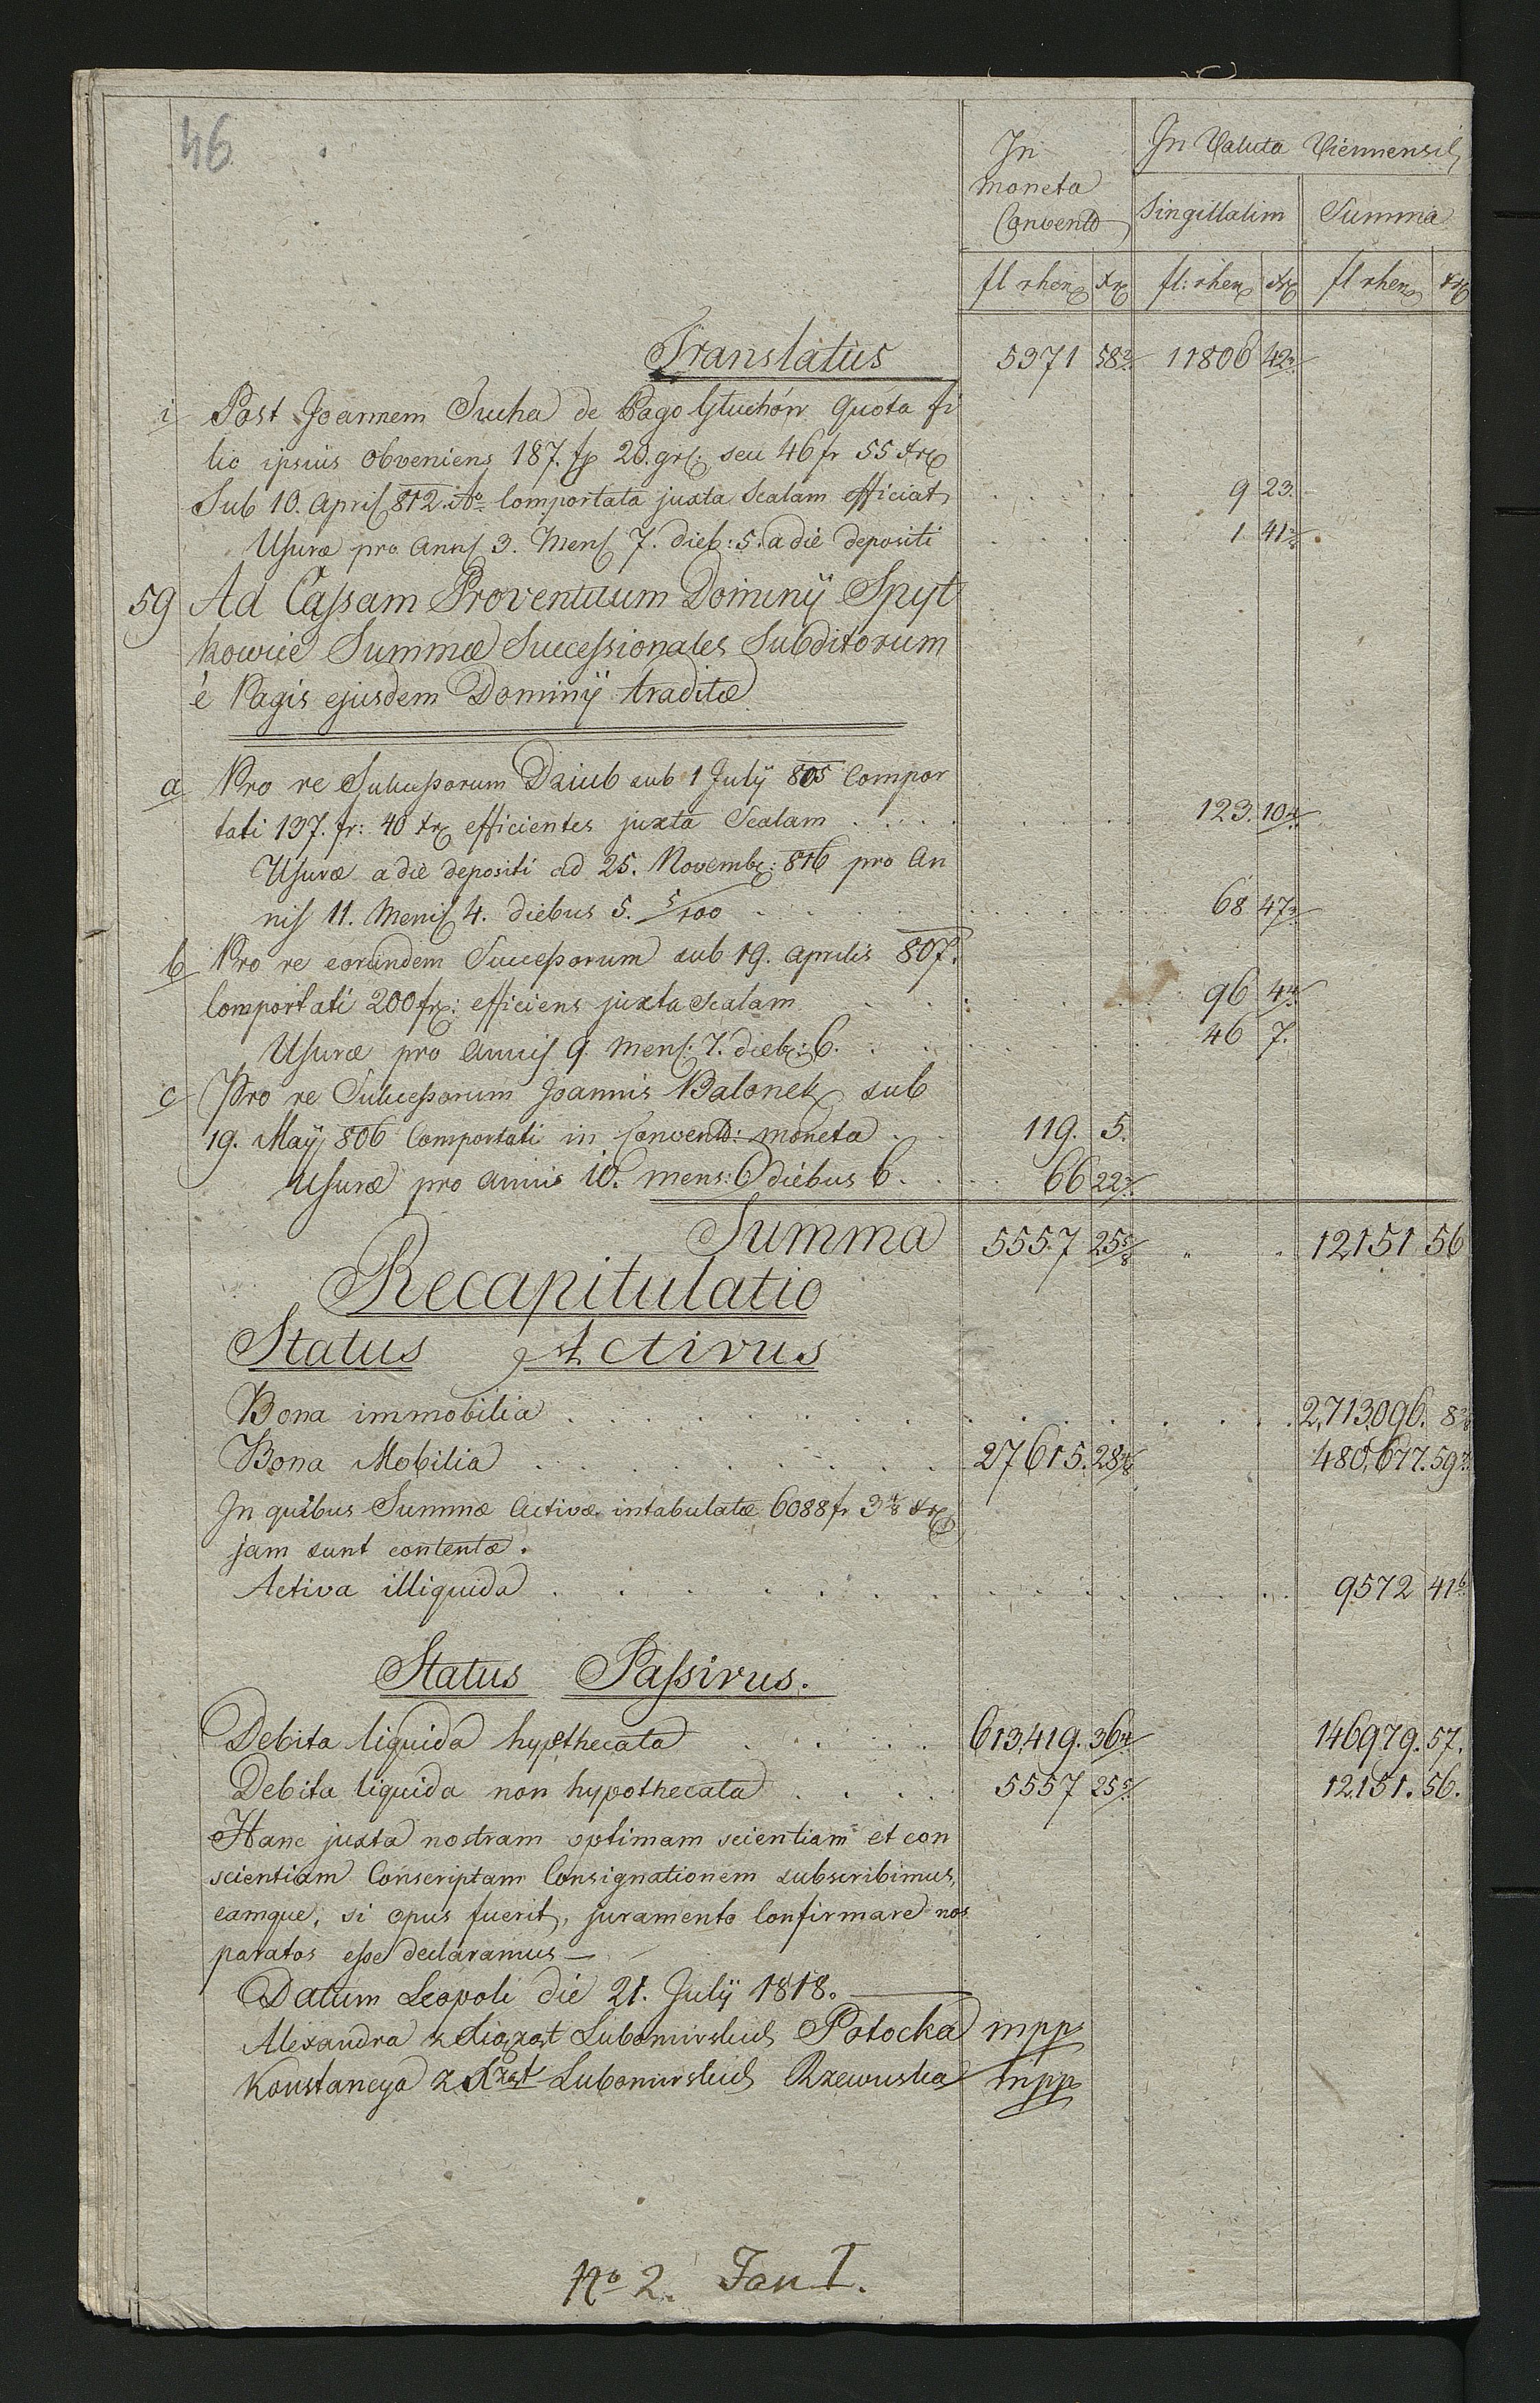 46
In moneta Convento
In Valuta Viennensi
Singillatim Summa
fl rhen xr fl: rhen xr fl rhen xr
Translatus 5371 58 11806 42
i Post Joannem Sucha de Pago Głuchów quota fi
lio ipsius obveniens 187. fp 20. gr. seu 46 fr 55 xr
Sub 10. April 812. Comportata juxta Scalam efficiat 9 23.
Usuræ pro Ann 3. Mens 7. dieb: 5. a die depositi 1 41
59 Ad Cassam Proventuum Dominij Spyt
kowice Summæ Successionales Subditorum
è Pagis ejusdem Dominij traditæ
a Pro re Successorum Dziub sub 1 July 805 Compor
tati 137. fr: 40 xr efficientes juxta Scalam 123. 10
Usuræ a die depositi ad 25. Novemb: 816 pro An
nis 11. Mens 4. diebus 5. 5/100 68 47
b Pro re eorundem Successorum sub 19. Aprilis 807.
Comportati 200 fr: efficiens juxta Scalam 96 4
Usuræ pro Annis 9. Mens. 7. dieb: 6. 46 7.
c Pro re Successorum Joannis Balonek sub
19. Maij 806 Comportati in Convent: moneta 119. 5.
Usuræ pro Annis 10. mens: 6 diebus 6. 66 22
Summa 5557 25 5/8 12151 56
Recapitulatio
Status Activus
Bona immobilia 2,713,096. 8
Bona Mobilia 27615. 28 480,677. 59
In quibus Summæ Activæ intabulatæ 6088 fr 3 xr
jam sunt contentæ.
Activa illiquida 9572 41
Status Passivus.
Debita liquida hypothecata 613,419. 36 146979. 57.
Debita liquida non hypothecata 5557 25 12151. 56.
Hanc juxta nostram optimam scientiam et con
scientiam Conscriptam Consignationem subscribimus,
eamque, si opus fuerit, juramento Confirmare nos
paratos esse declaramus —
Datum Leopoli die 21. July 1818. —
Alexandra z Xiążąt Lubomirskich Potocka mpp
Konstancya z Xżąt Lubomirskich Rzewuska mpp
No 2. Fan I.